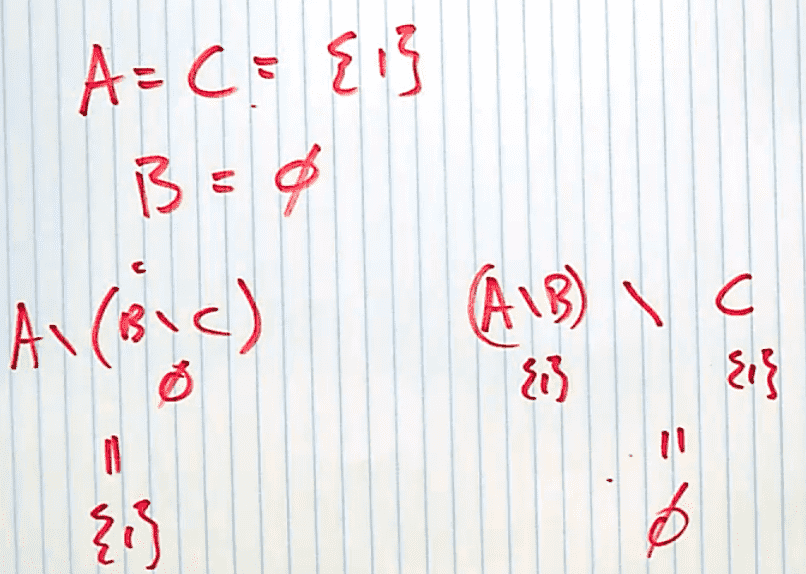 A = C = {1}
B = ∅
A \ (B \ C) (A \ B) \ C
∅ {1} {1}
= =
{1} ∅